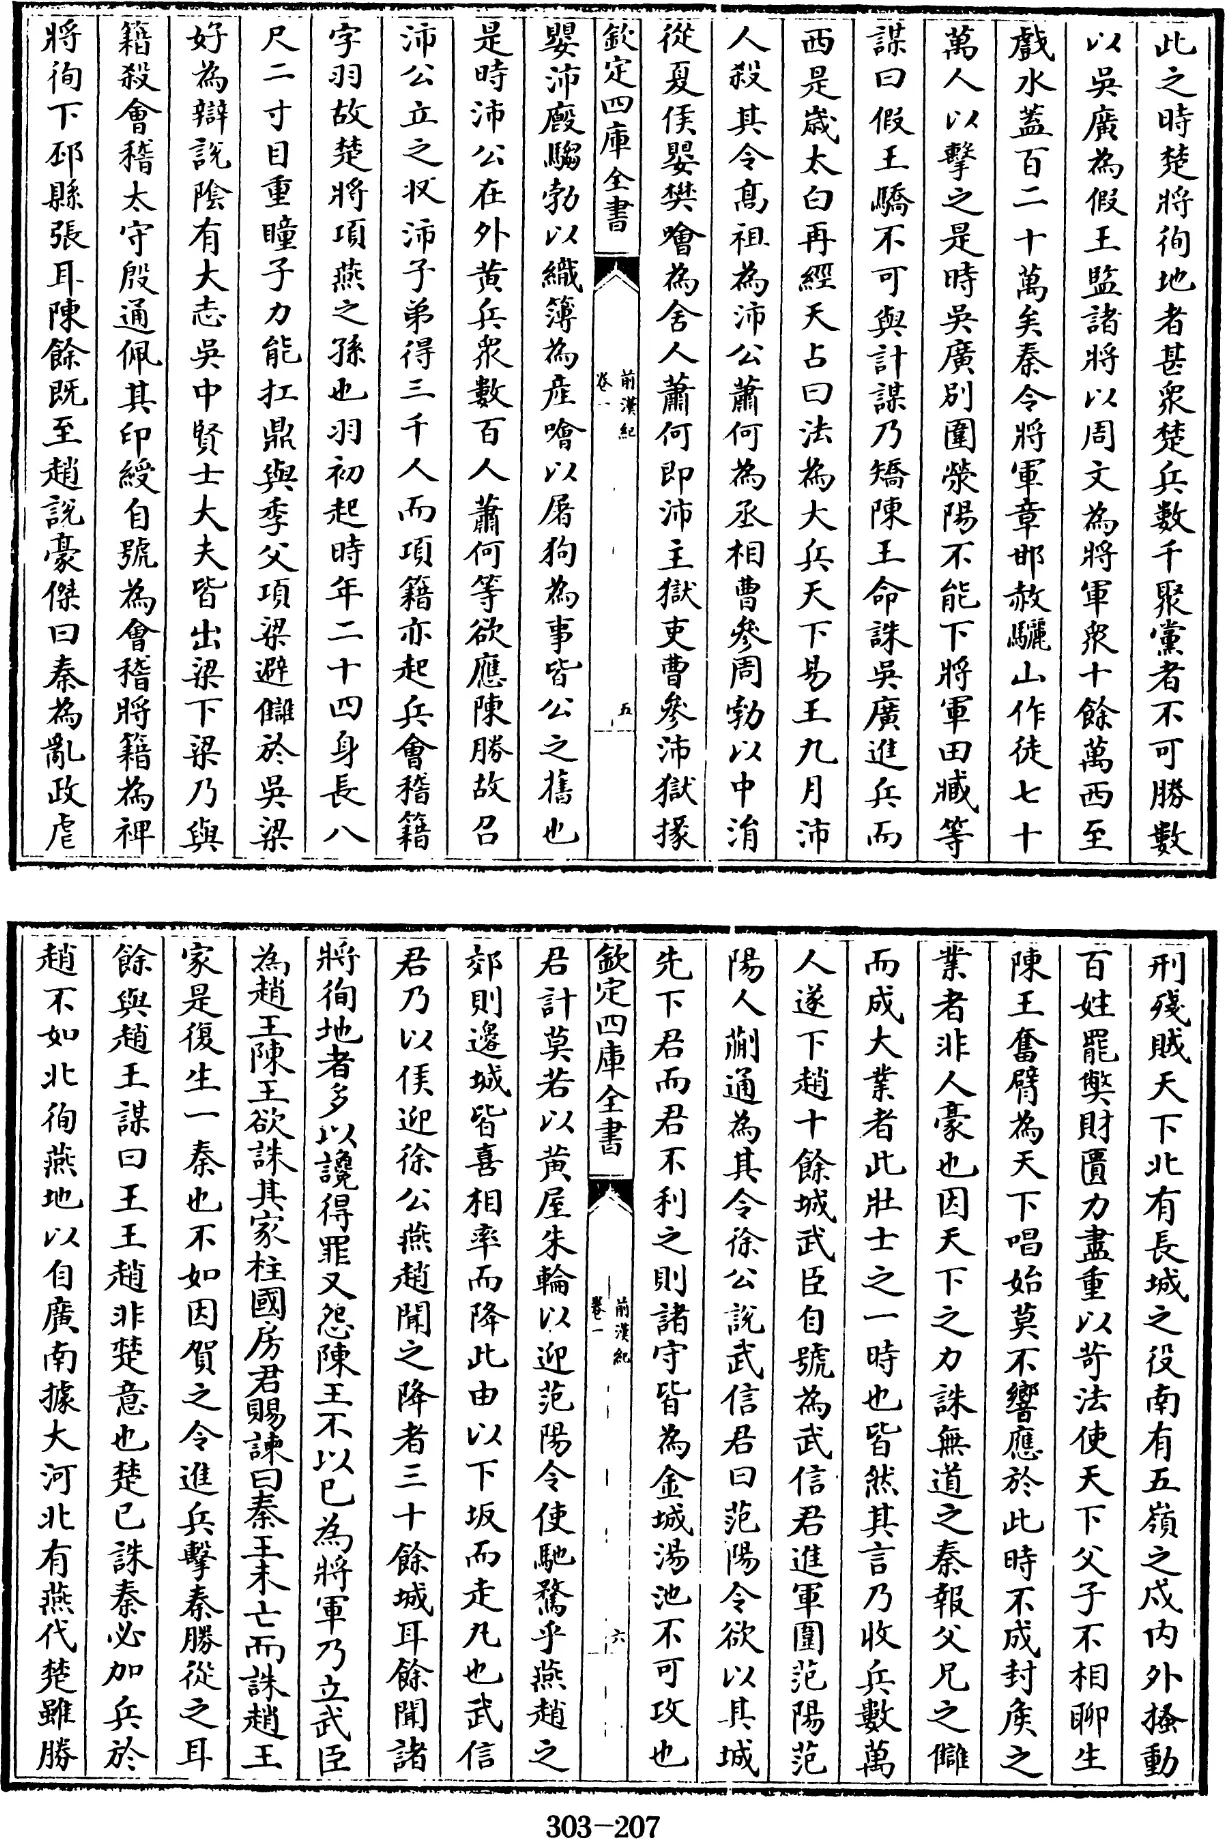 此之時楚將徇地者甚衆楚兵數千聚黨者不可勝數
以吳廣為假王監諸將以周文為將軍衆十餘萬西至
戲水蓋百二十萬矣秦令將軍章邯赦驪山作徒七十
萬人以擊之是時吳廣別圍滎陽不能下將軍田臧等
謀曰假王驕不可與計謀乃矯陳王命誅吳廣進兵而
西是嵗太白再經天占曰法為大兵天下易王九月沛
人殺其令髙祖為沛公蕭何為丞相曹參周勃以中涓
從夏侯嬰樊噲為舍人蕭何即沛主獄吏曹參沛獄掾
欽定四庫全書
前漢紀
卷一
五
嬰沛廐騶勃以織簿為産噲以屠狗為事皆公之舊也
是時沛公在外黄兵衆數百人蕭何等欲應陳勝故召
沛公立之収沛子弟得三千人而項籍亦起兵會稽籍
字羽故楚將項燕之孫也羽初起時年二十四身長八
尺二寸目重瞳子力能扛鼎與季父項梁避讎於吳梁
好為辯說陰有大志吳中賢士大夫皆出梁下梁乃與
籍殺會稽太守殷通佩其印綬自號為會稽將籍為裨
將徇下邳縣張耳陳餘既至趙説豪傑曰秦為亂政虐
刑殘賊天下北有長城之役南有五嶺之戍内外搔動
百姓罷獘財匱力盡重以苛法使天下父子不相聊生
陳王奮臂為天下唱始莫不響應於此時不成封侯之
業者非人豪也因天下之力誅無道之秦報父兄之讎
而成大業者此壯士之一時也皆然其言乃收兵數萬
人遂下趙十餘城武臣自號為武信君進軍圍范陽范
陽人蒯通為其令徐公説武信君曰范陽令欲以其城
先下君而君不利之則諸守皆為金城湯池不可攻也
欽定四庫全書
前漢紀
卷一
六
君計莫若以黄屋朱輪以迎范陽令使馳騖乎燕趙之
郊則邉城皆喜相率而降此由以下坂而走凡也武信
君乃以侯迎徐公燕趙聞之降者三十餘城耳餘聞諸
將徇地者多以讒得罪又怨陳王不以已為將軍乃立武臣
為趙王陳王欲誅其家柱國房君賜諫曰秦王未亡而誅趙王
家是復生一秦也不如因賀之令進兵擊秦勝從之耳
餘與趙王謀曰王王趙非楚意也楚已誅秦必加兵於
趙不如北徇燕地以自廣南據大河北有燕代楚雖勝
303-207